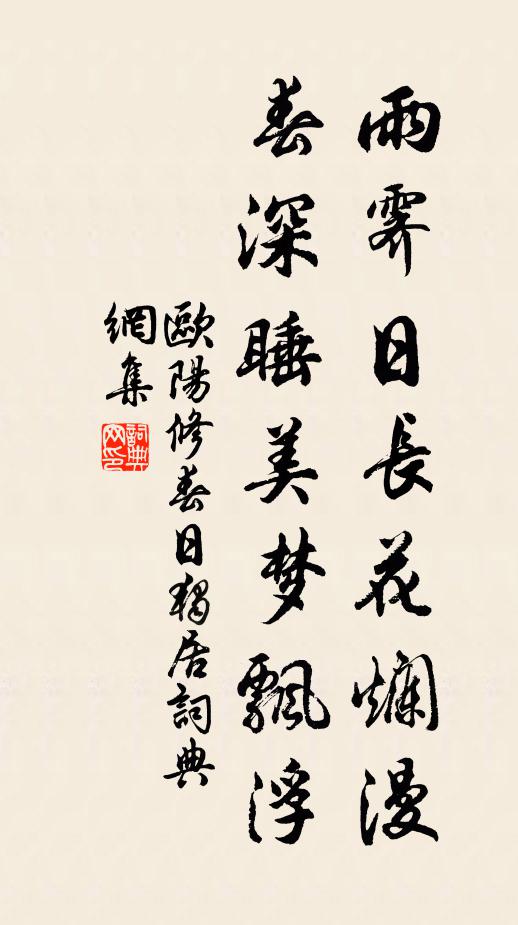 雨霽日長花爛漫
春深睡美梦飄浮
歐陽修春日獨居詞典
網集
詞典
网印